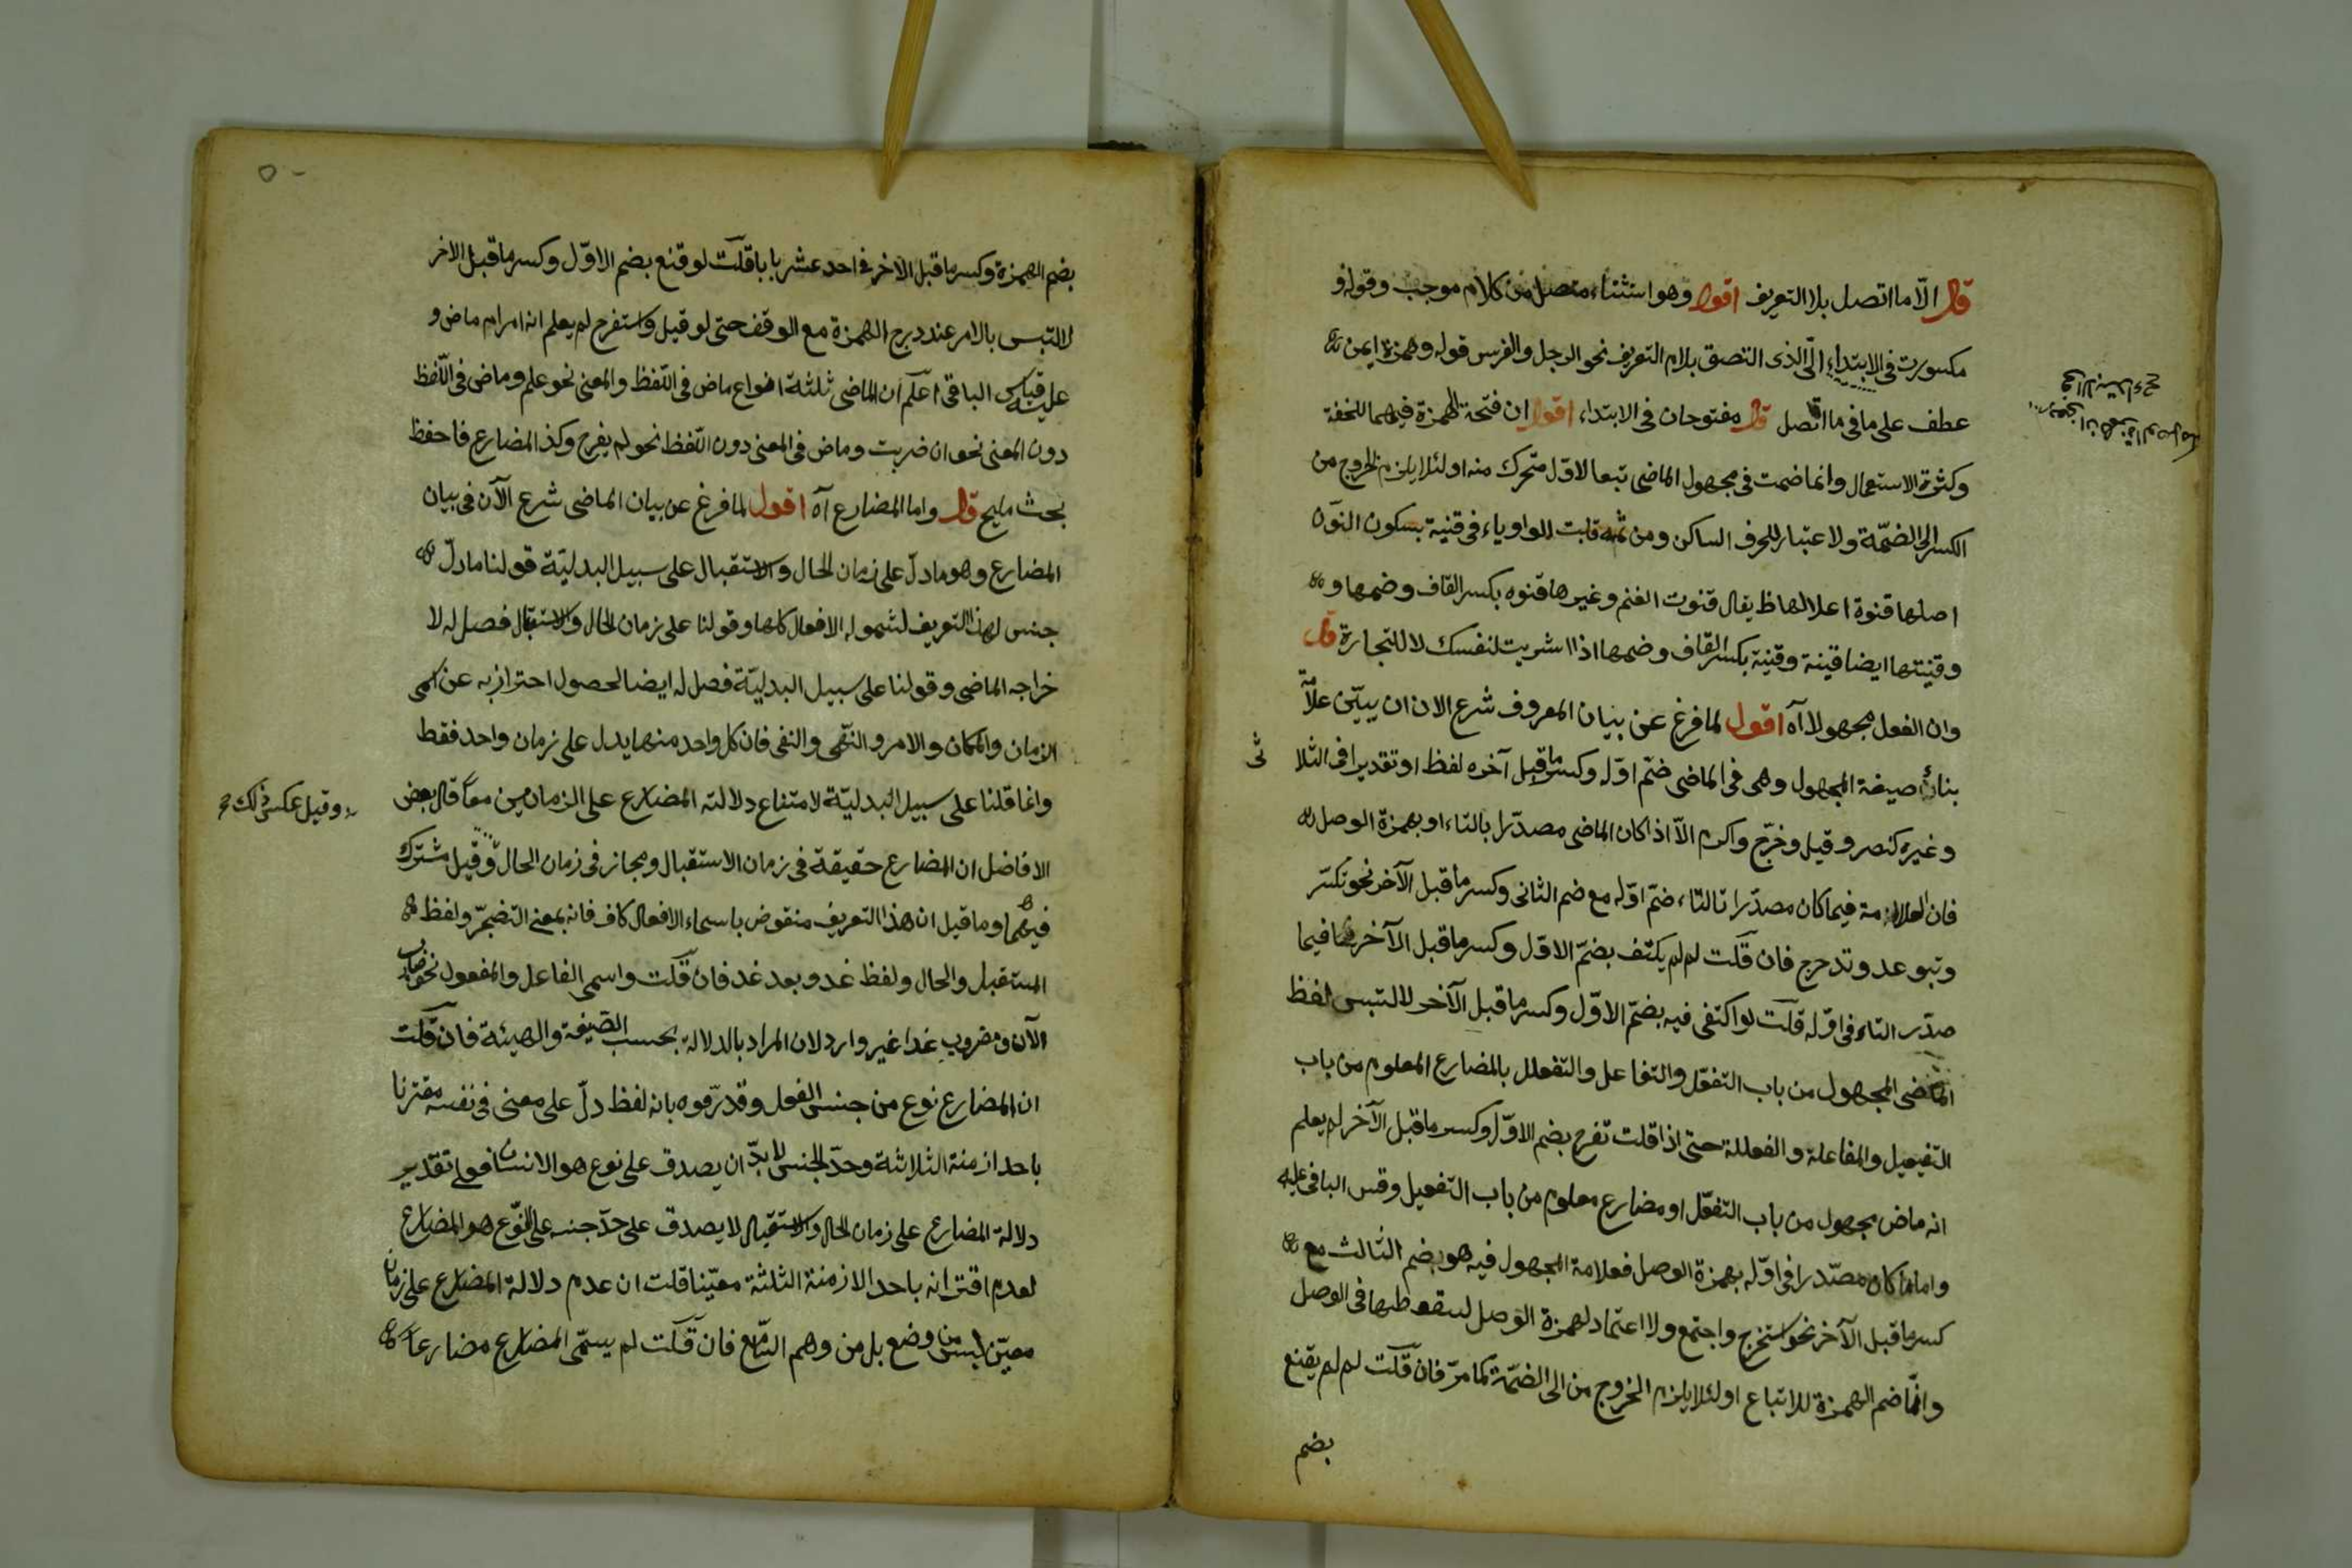 قال الّا ما اتصل بلا التعريف اقول وهو استثناء متصل من كلام موجب وقوله و
مكسورت فى الابتداء الّا الذى التصق بلام التعريف نحو الرجل والفرس قوله وهمزة ايمن
عطف على ما فى ما اتصل قال مفتوحان فى الابتداء اقول ان فتحة الهمزة فيهما للخفة
وكثرة الاستعمال وانما ضمت فى مجهول الماضى تبعا لاول متحرك منه او لئلا يلزم الخروج من
الكسر الى الضمّة ولا عتبار للحرف الساكن ومن ثمه قلبت الواو ياء فى قنية بسكون النون
اصلها قنوة اعلالها يقال قنوت الغنم وغيرها قنوه بكسر القاف وضمها و
وقنيتها ايضا قينة وقنية بكسر القاف وضمها اذا اشريت لنفسك لا للتجارة قال
وان الفعل مجهولا آه اقول لما فرغ عن بيان المعروف شرع الان ان يبيّن علامة
بناء صيغة المجهول وهى فى الماضى ضمّ اوّله وكسر ما قبل آخره لفظا او تقديرا فى الثلا ثى
وغيره كنصر وقيل وخرّج واكرم الّا اذا كان الماضى مصدّرا بالتاء او بهمزة الوصل
فان العلامة فيما كان مصدّرا بالتاء ضمّ اوّله مع ضم الثانى وكسر ما قبل الآخر نحو تكسّر
وتبوعد وتدحرج فان قلت لم لم يكتف بضمّ الاوّل وكسر ما قبل الآخر فيما
صدّر التاء فى اوّله قلت لو اكتفى فيه بضمّ الاوّل وكسر ما قبل الآخر لالتبس لفظ
الماضى المجهول من باب التفعّل والتفاعل والتفعلل بالمضارع المعلوم من باب
التفعيل والمفاعلة والفعللة حتى اذا قلت تفرح بضم الاوّل وكسر ما قبل الآخر لم يعلم
انه ماض مجهول من باب التفعّل او مضارع معلوم من باب التفعيل وقس الباقى عليه
واما ما كان مصدّرا فى اوّله بهمزة الوصل فعلامة المجهول فيه هو بضم الثالث مع
كسر ما قبل الآخر نحو استخرج واجتمع ولا اعتماد لهمزة الوصل لسقوطها فى الوصل
وانّما ضم الهمزة للاتباع او لئلا يلزم الخروج من الى الضمّة كما مرّ فان قلت لم لم يقنع
بضم
بضم الهمزة وكسر ما قبل الآخر فى احد عشر بابا قلت لو قنع بضم الاوّل وكسر ما قبل الاخر
لالتبس بالامر عند درج الهمزة مع الوقف حتى لو قيل واستفرج لم يعلم انه امر ام ماض و
عليه قياس الباقى اعلم ان الماضى ثلثة انواع ماض فى اللّفظ والمعنى نحو علم وماض فى اللّفظ
دون المعنى نحو ان ضربت وماض فى المعنى دون اللّفظ نحو لم يفرح وكذ المضارع فاحفظ
بحث مليح قال واما المضارع آه اقول لما فرغ عن بيان الماضى شرع الآن فى بيان
المضارع وهو ما دلّ على زمان الحال والاستقبال على سبيل البدليّة قولنا ما دلّ
جنس لهذا التعريف لشموله الافعال كلها وقولنا على زمان الحال والاستقبال فصل له لا
خراجه الماضى وقولنا على سبيل البدليّة فصل له ايضا لحصول احتراز به عن اسمى
الزمان والمكان والامر والنّهى والنفى فان كل واحد منها يدل على زمان واحد فقط
وانما قلنا على سبيل البدليّة لامتناع دلالته المضارع على الزمانين معا قال بعض
الافاضل ان المضارع حقيقة فى زمان الاستقبال ومجاز فى زمان الحال وقيل مشترك
وقيل عكس ذلك
فيهما وما قيل ان هذا التعريف منقوض باسماء الافعال كاف فانه بمعنى التضجّر ولفظ
المستقبل والحال ولفظ غد وبعد غد فان قلت واسمى الفاعل والمفعول نحو ضارب
الآن ومضروب غدا غير وارد لان المراد بالدلالة بحسب الصّيغة والهيئة فان قلت
ان المضارع نوع من جنس الفعل وقد عرّفوه بانه لفظ دلّ على معنى فى نفسه مقترنا
باحد ازمنة الثلاثة وحدّ الجنس لابدّ ان يصدق على نوع هو الانسان فعلى تقدير
دلالة المضارع على زمان الحال والاستقبال لا يصدق على حدّ جنسه على النّوع هو المضارع
لعدم اقترانه باحد الازمنة الثلثة معيّنا قلت ان عدم دلالة المضارع على زمان
معيّن ليس من وضع بل من وهم السّامع فان قلت لم يسمّى المضارع مضارعا